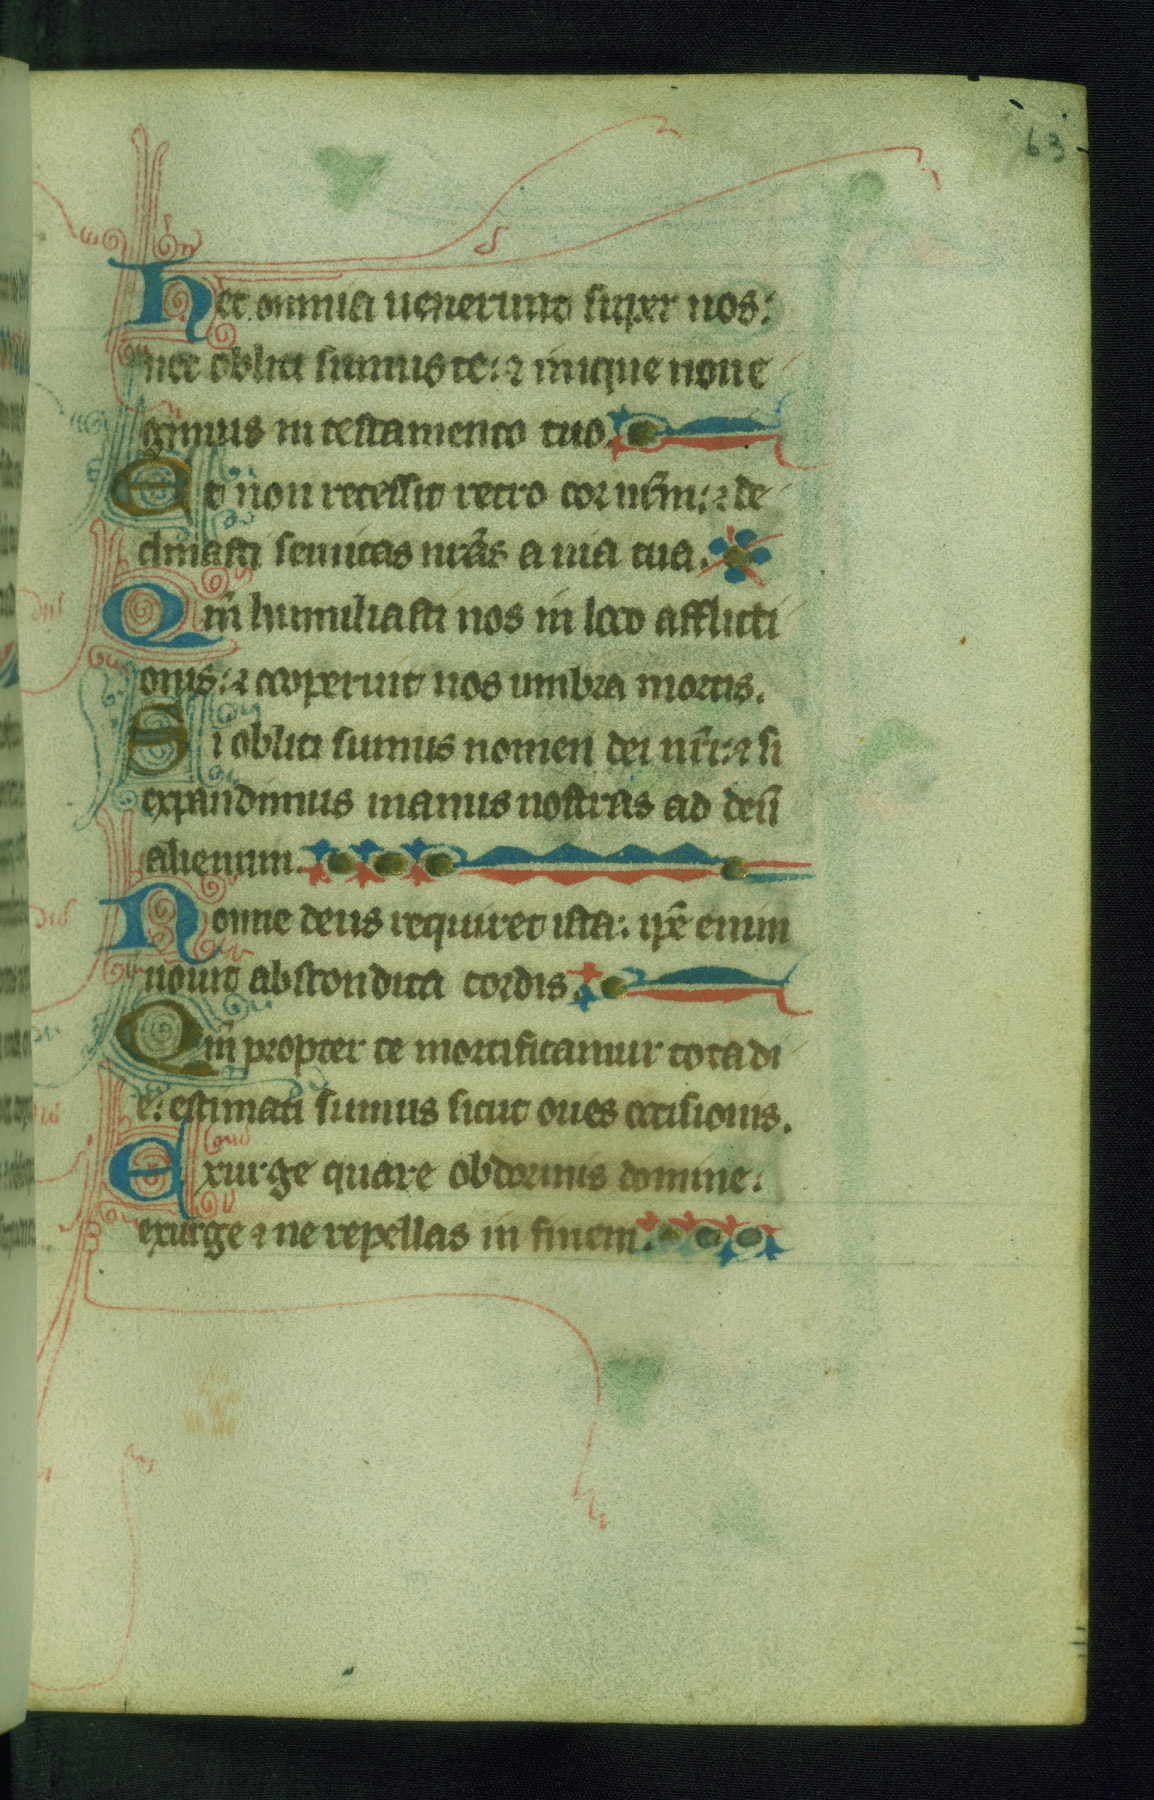 63
Hec omnia uenerunt super nos:
nec obliti sumus te: ⁊ inique non e
gimus in testamento tuo.
Et non recessit retro cor nr̄m: ⁊ de
clinasti semitas nr̄as a uia tua.
Qm̄ humiliasti nos in loco afflicti
onis: ⁊ cooperuit nos umbra mortis.
Si obliti sumus nomen dei nr̄i: ⁊ si
expandimus manus nostras ad deū
alienum.
Nonne deus requiret ista: ip̄e enim
nouit abscondita cordis.
Qm̄ propter te mortificamur tota di
e: estimati sumus sicut oues occisionis.
Exurge quare obdormis domine:
exurge ⁊ ne repellas in finem.